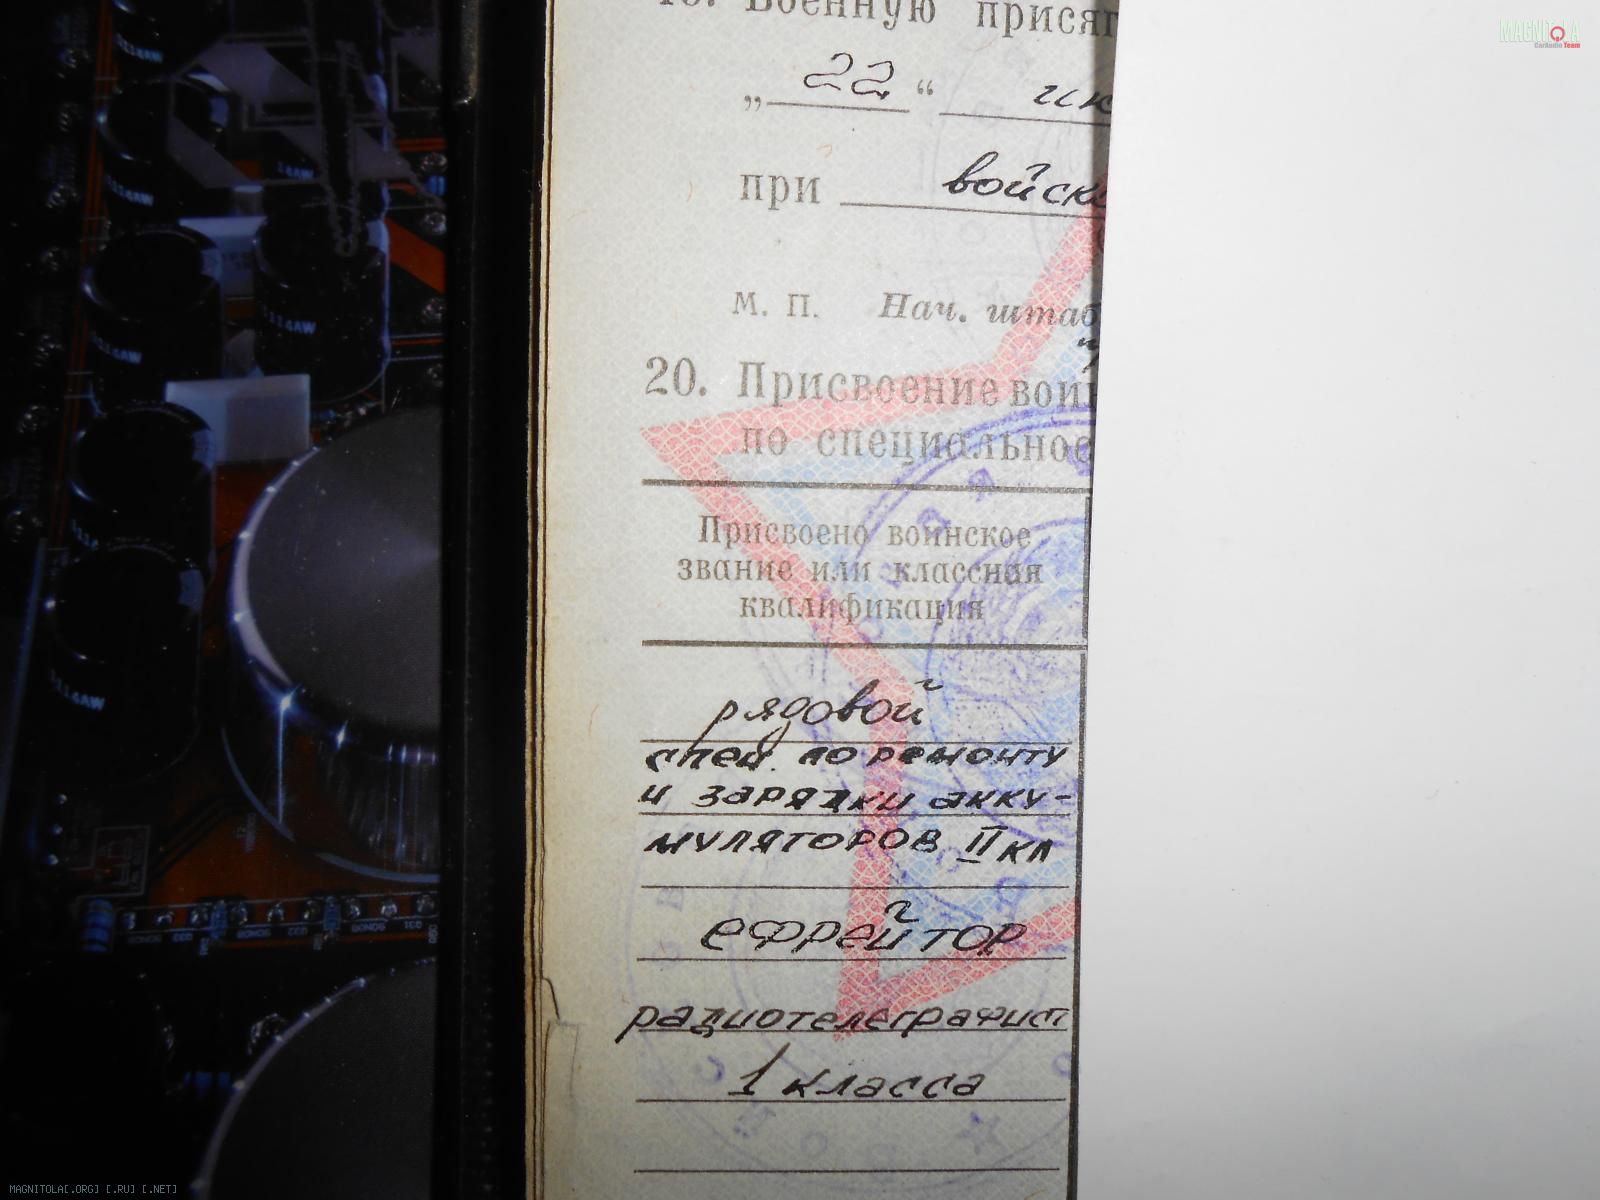 MAGNITOLA
CarAudio Team
Военную присяг
„ 22 “ ию
при войско
М. П. Нач. штаб
20. Присвоение воин
по специальнос
Присвоено воинское
звание или классная
квалификация
рядовой
спец. по ремонту
и зарядки акку-
муляторов II кл
ефрейтор
радиотелеграфист
1 класса
114AW
114AW
114AW
114AW
114AW
MAGNITOLA[.ORG] [.RU] [.NET]